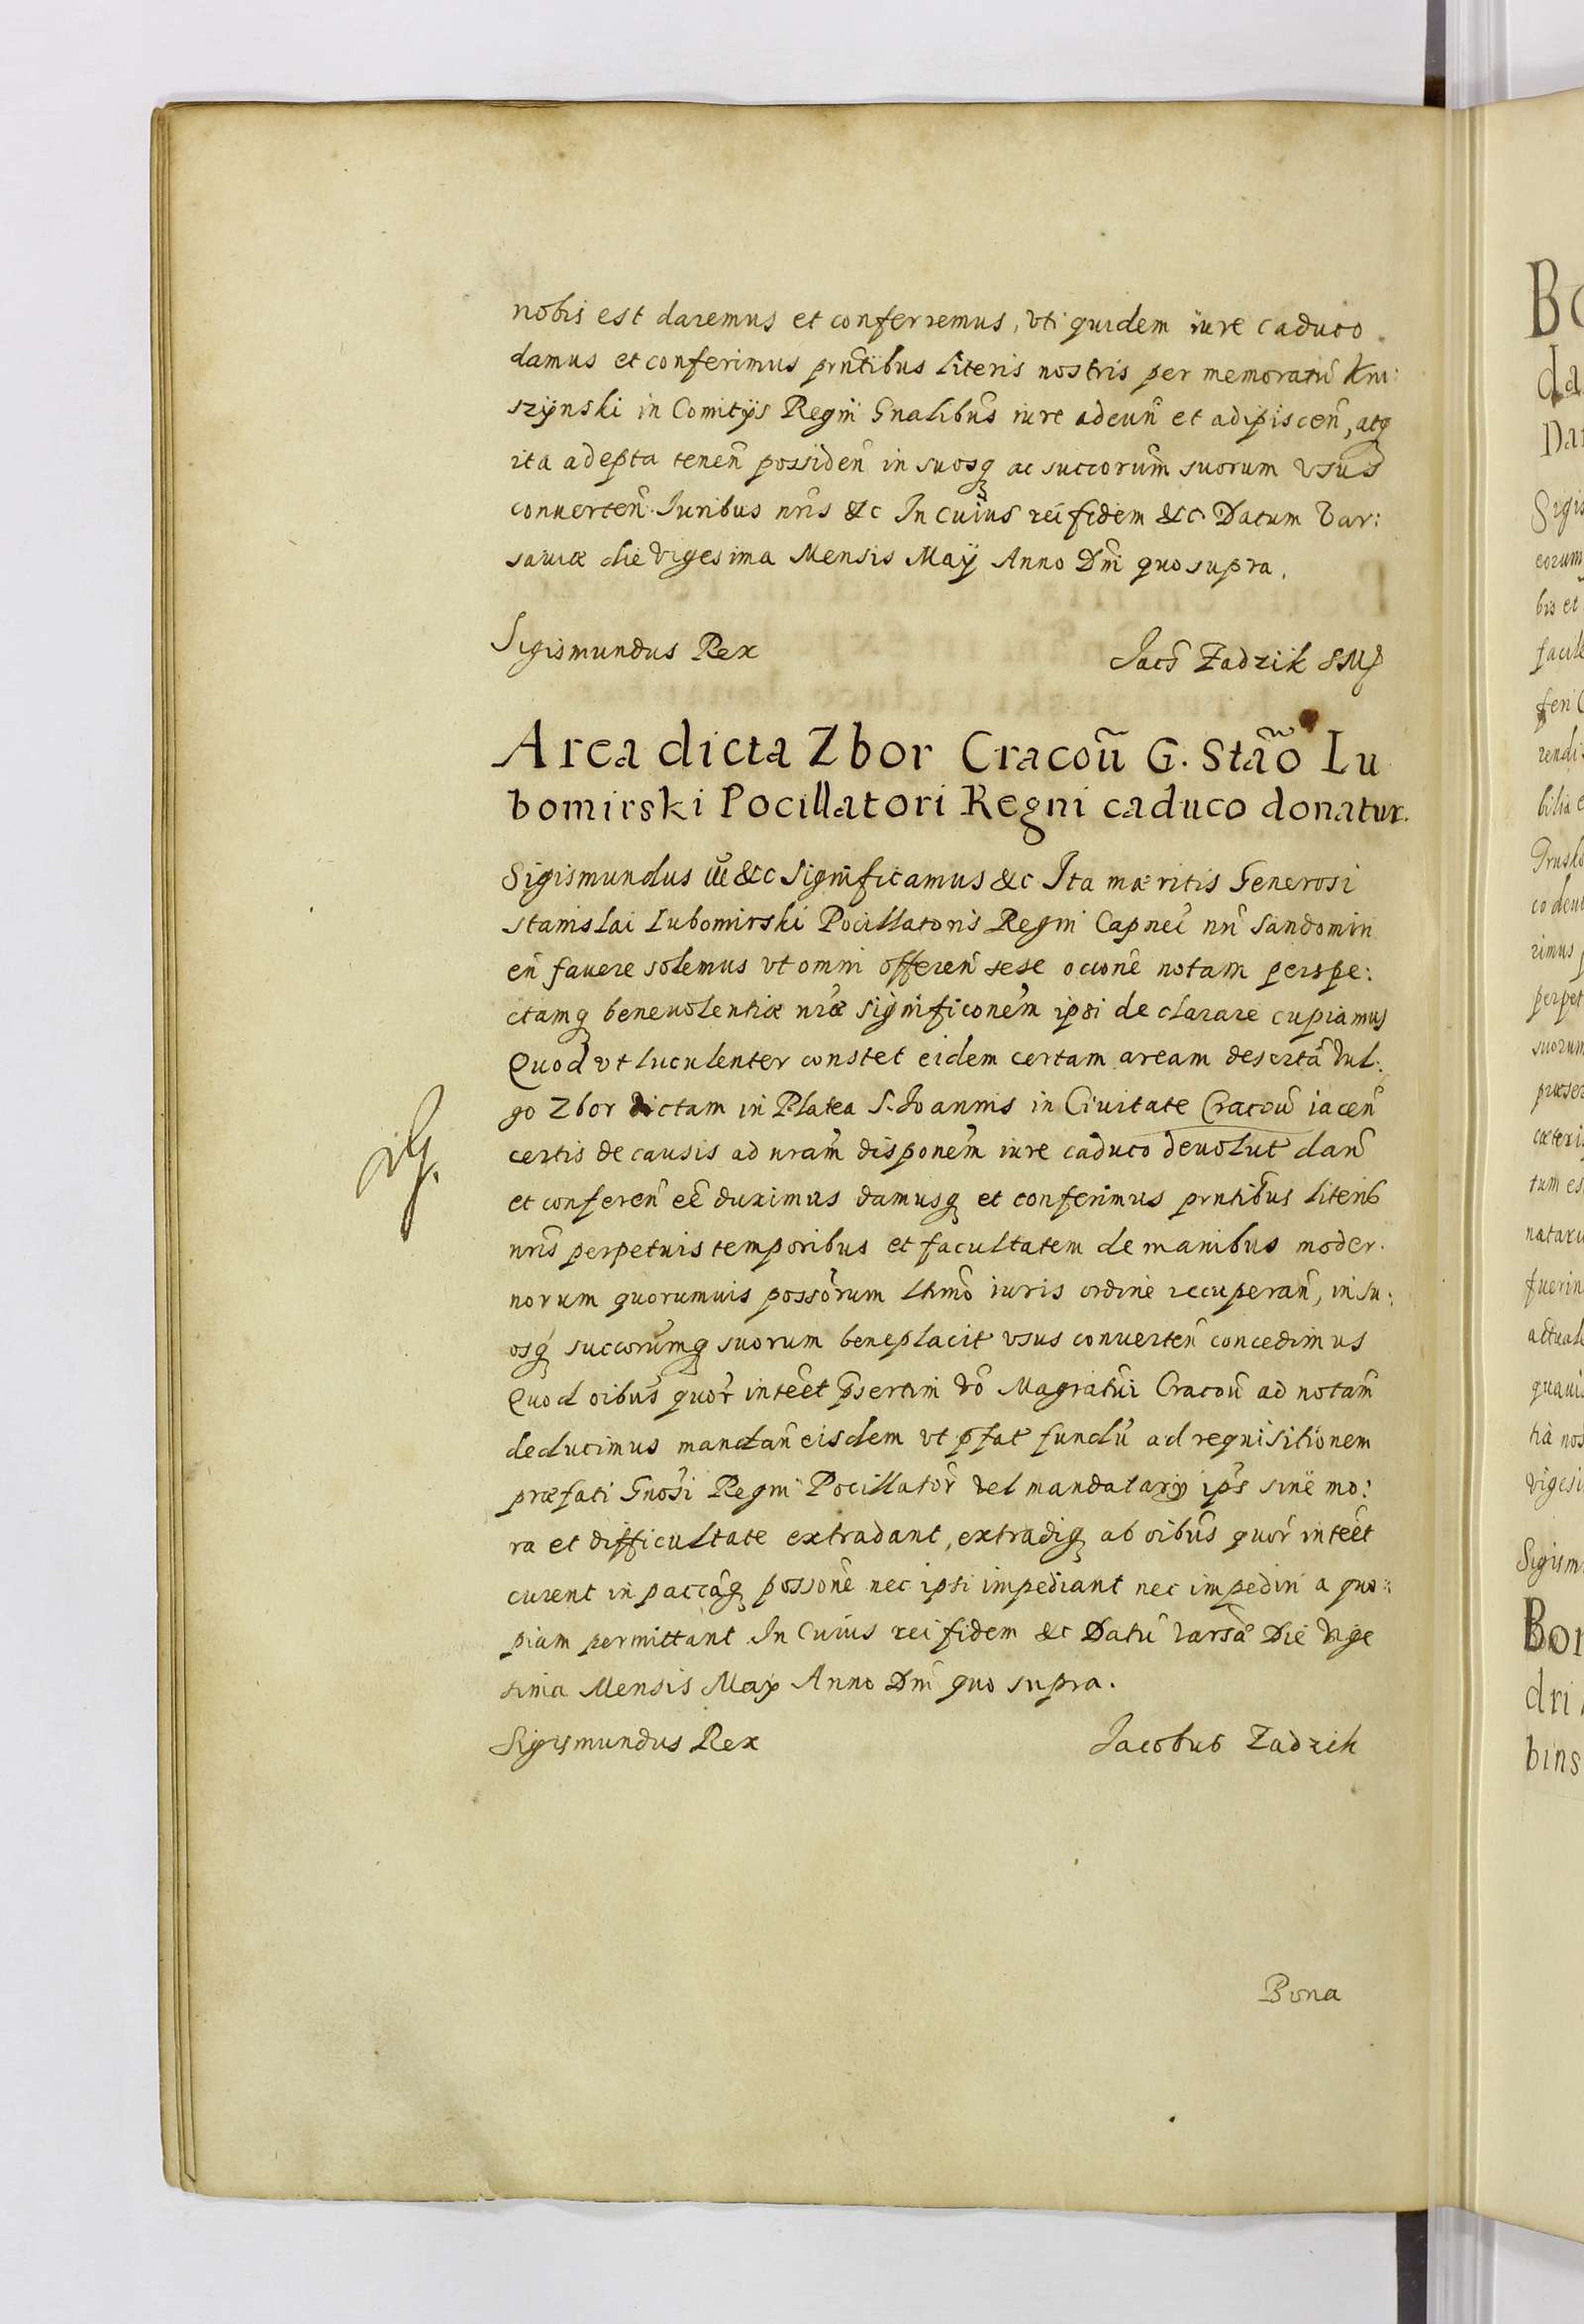 nobis est daremus et conferremus, vti quidem iure caduco
damus et conferimus prntibus literis nostris per memoratũ Kru:
szÿnski in Comitÿs Regni Gnalibus iure adeuñ et adipisceñ, atq
ita adepta teneñ possideñ in suosq ac succorum̃ suorum vsus
conuerteñ. Iuribus nr̃is &c In cuius rei fidem &c Datum Var:
sauiæ die vigesima Mensis Maÿ Anno Dni quo supra.
Sigismundus Rex
Jacõ Zadzik
Area dicta Zbor Cracoũ G. Stão Lu
bomirski Pocillatori Regni caduco donatur.
Sigismundus &c Significamus &c Ita mæritis Generosi
Stanislai Lubomirski Pocillatoris Regni Capnei nri Sandomiri
eñ fauere solemus vt omni offereñ sese occione notam perspe:
ctamq beneuolentiæ nr̃æ significonem̃ ipsi declarare cupiamus
Quod vt luculenter constet eidem certam aream desertã Vul:
go Zbor dictam in Platea S. Joannis in Ciuitate Cracoũ iaceñ
certis de causis ad nram̃ disponem̃ iure caduco deuolut dañ
et confereñ eẽ duximus damusq et conferimus prntibus literis
nr̃is perpetuis temporibus et facultatem de manibus moder:
norum quorumuis possorum̃ lttimo iuris ordine recuperañ, in su:
osq succorumq suorum beneplacit vsus conuerteñ concedimus
Quod oibus quor̃ inteẽt p̃sertim võ Magratui Cracoũ ad notam̃
deducimus mandañ eisdem vt p̃fat fundũ ad requisitionem
præfati Gnosi Regni Pocillator̃ vel mandatarÿ ip̃s sine mo:
ra et difficultate extradant, extradiq ab oibus quor̃ inteẽt
curent in paccãq possonẽ nec ipsi impediant nec impediri a quo:
piam permittant In Cuius rei fidem &c Datũ Varsã Die Vige
sima Mensis Maÿ Anno Dni quo supra.
Sigismundus Rex
Jacobus Zadzik
Bona